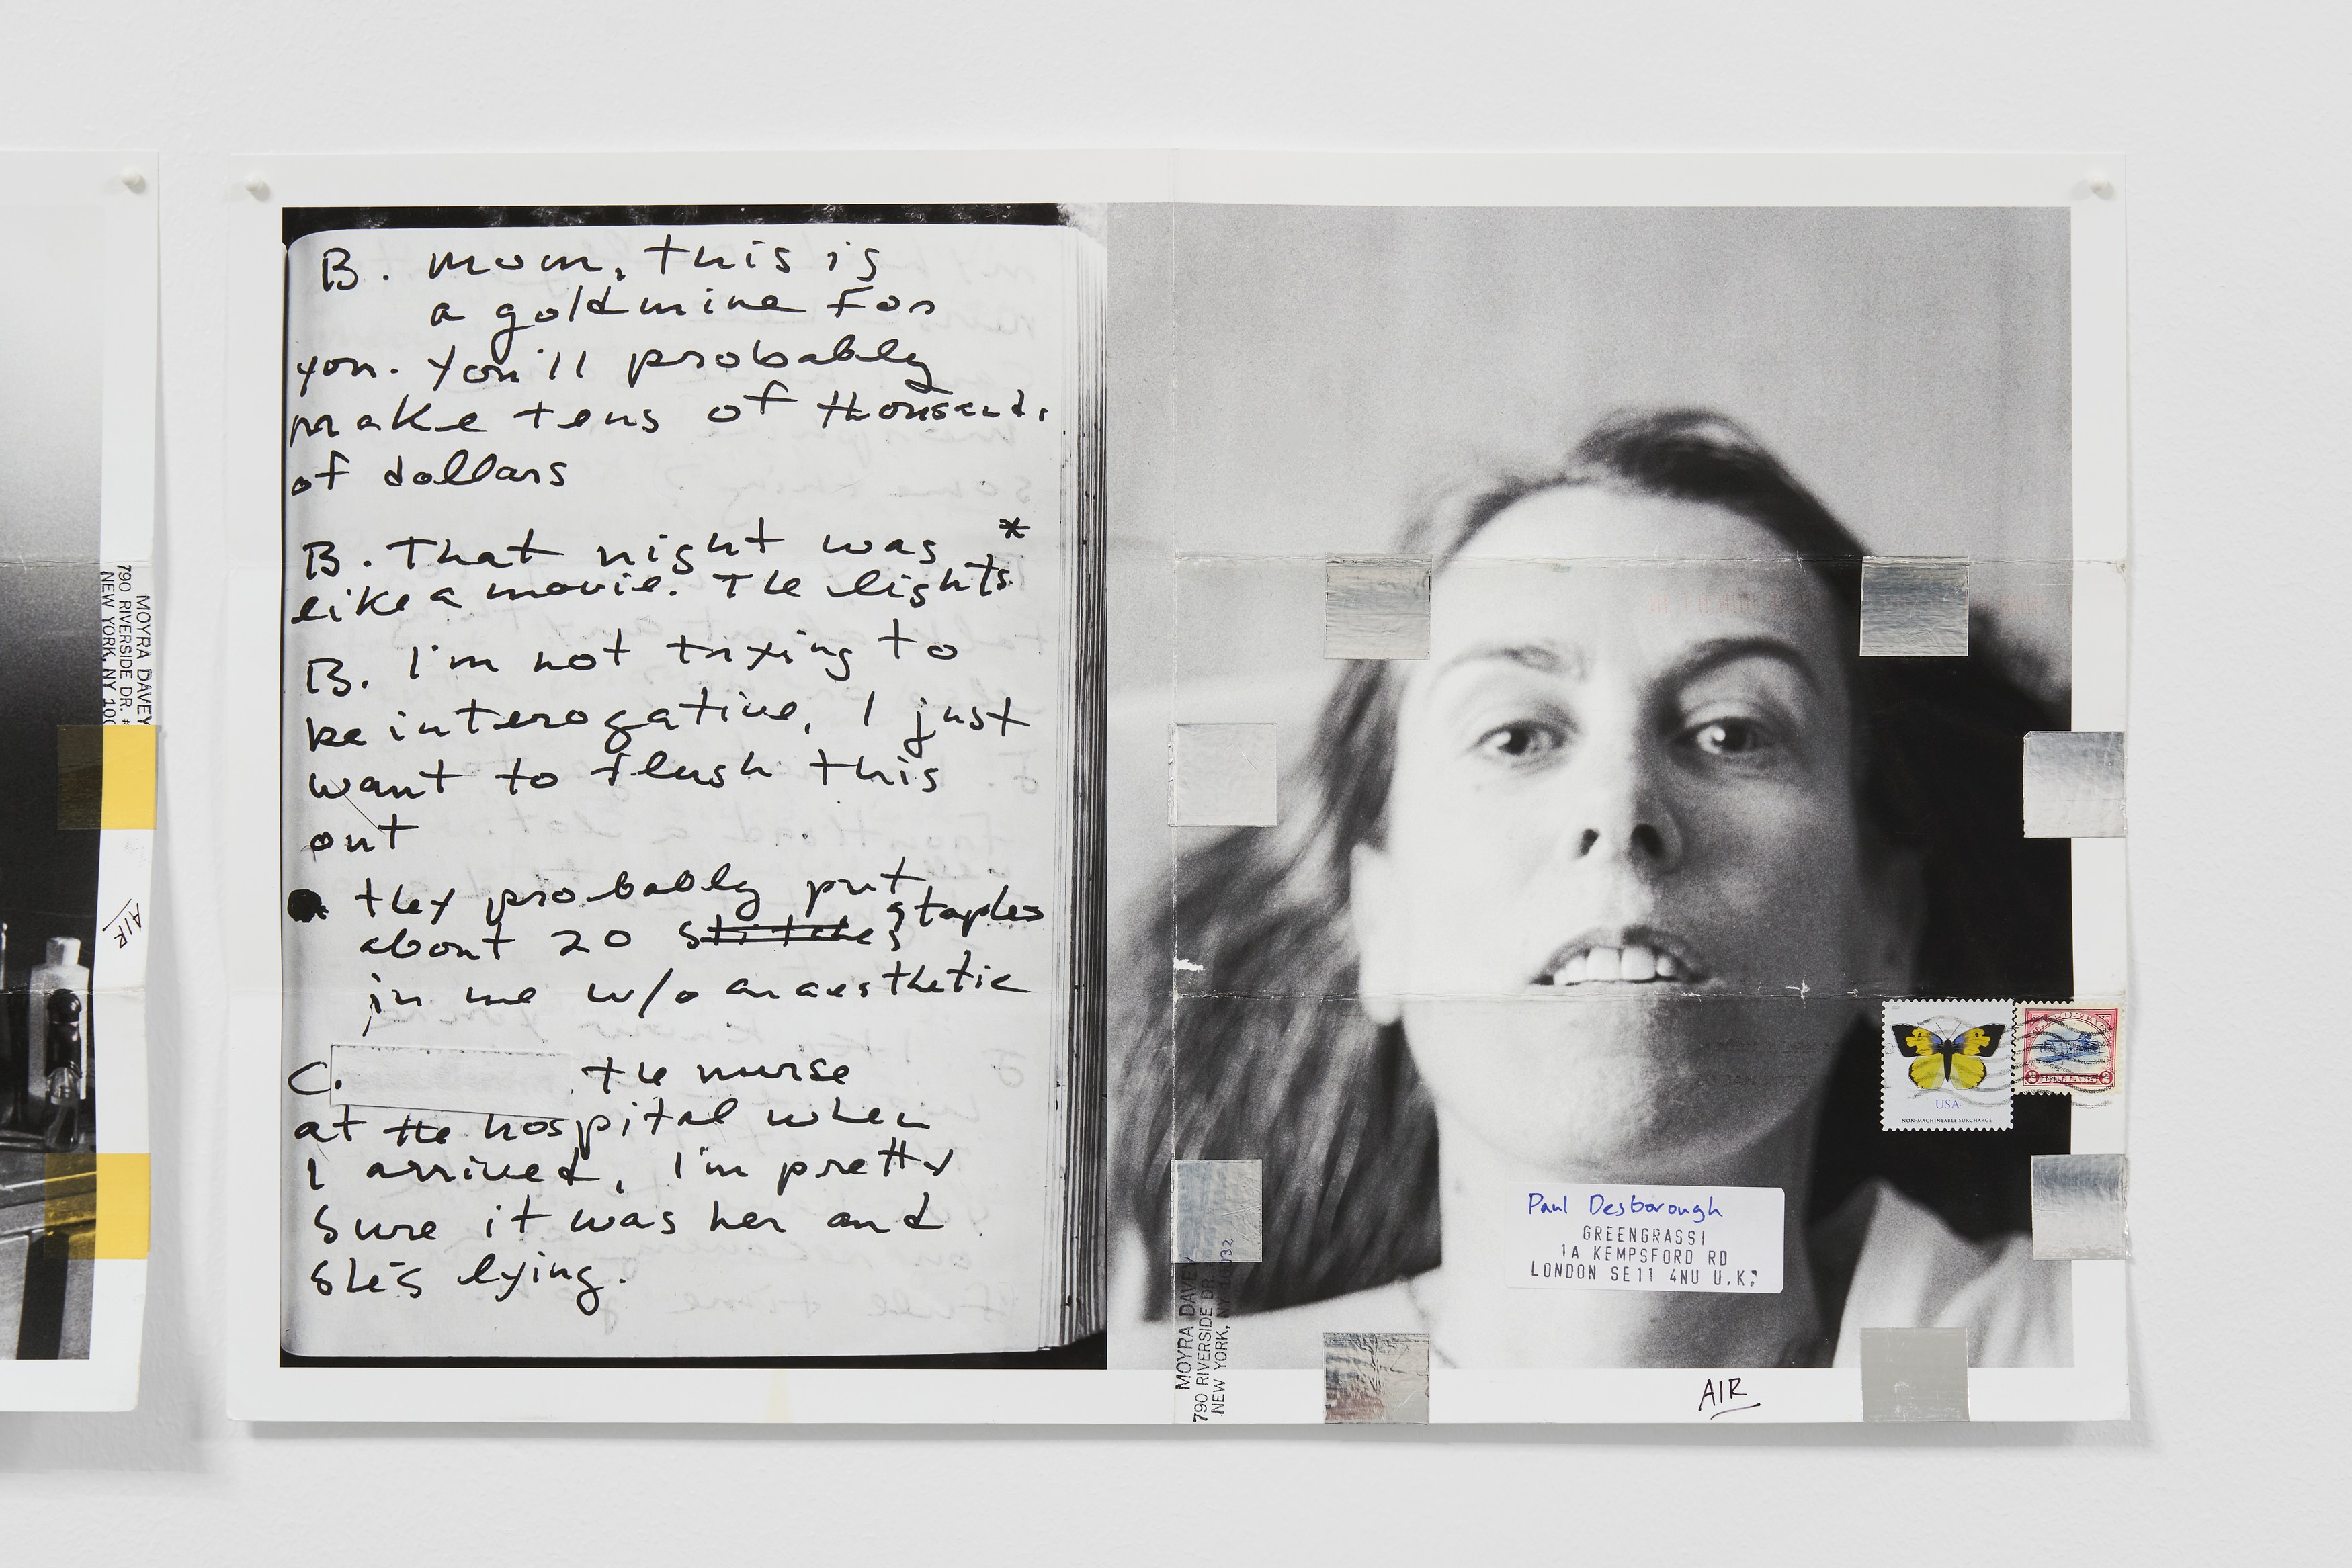 B. Mom, this is
a goldmine for
you. You'll probably
make tens of thousands
of dollars
B. That night was *
like a movie. The lights
B. I'm not trying to
be interogative, I just
want to flush this
out
they probably put
about 20 stitches staples
in me w/o anaesthetic
C. the nurse
at the hospital when
I arrived, I'm pretty
sure it was her and
she's lying.
MOYRA DAVEY
790 RIVERSIDE DR.
NEW YORK, NY 100
AIR
USA
NON-MACHINEABLE SURCHARGE
2 2
Paul Desborough
GREENGRASSI
1A KEMPSFORD RD
LONDON SE11 4NU U.K.
MOYRA DAVEY
790 RIVERSIDE DR.
NEW YORK, NY 10032
AIR